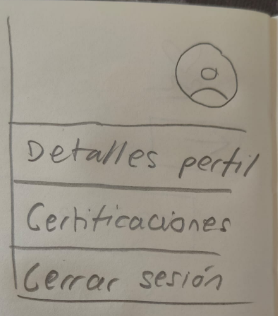 Detalles perfil
Certificaciones
Cerrar sesión